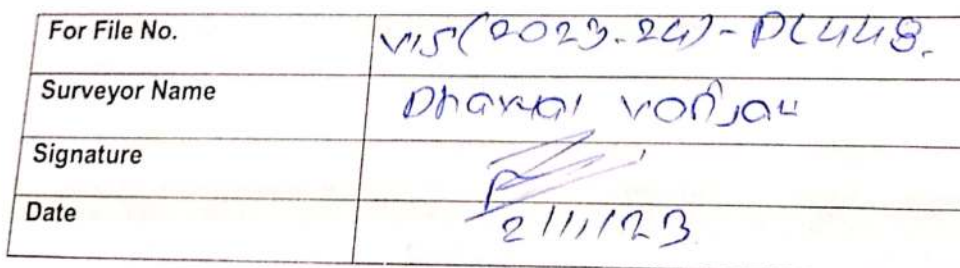 For File No. VIS(2023-24)-PL448.
Surveyor Name Dhaval Vanjar
Signature
Date 2/11/23